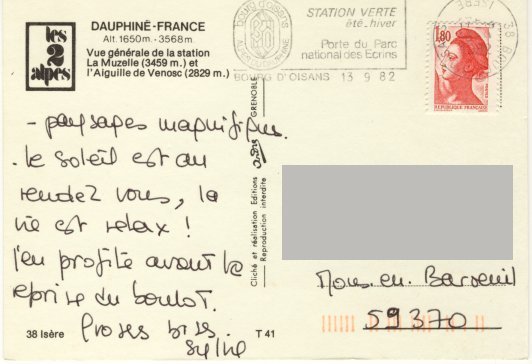 les
2
alpes
DAUPHINÉ-FRANCE
Alt. 1650m. - 3568m.
Vue générale de la station
La Muzelle (3459 m.) et
l'Aiguille de Venosc (2829 m.)
- paysages magnifiques.
. le soleil est au
rendez vous, la
vie est relax !
J'en profite avant la
reprise du boulot.
Grosses bises.
Sylvie
38 Isère
T 41
Cliché et réalisation Editions GRENOBLE
Reproduction interdite
STATION VERTE
été_hiver
Porte du Parc
national des Ecrins
BOURG D'OISANS 13 9 82
ISERE
1,80
REPUBLIQUE FRANCAISE
Mons. en. Baroeuil
59370